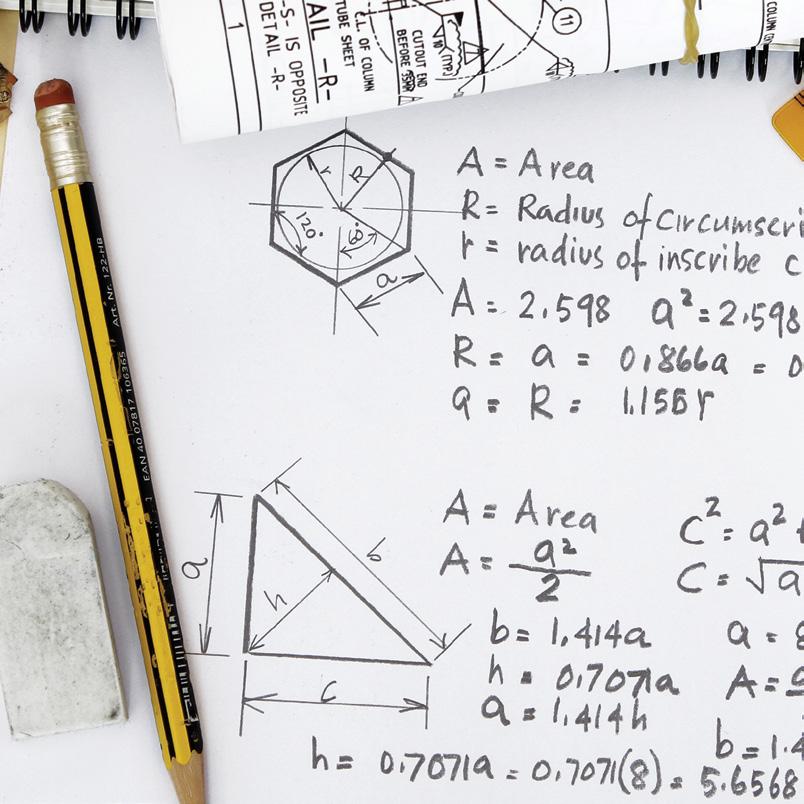 1
-S- IS OPPOSITE
DETAIL -R-
AIL -R-
TUBE SHEET
C.L. OF COLUMN
CUTOUT END
BEFORE
(TYP.)
11
COLUMN
Art. Nr. 122-HB
EAN 40 07817 106365
r
R
120°
60°
a
A = Area
R = Radius of circumscri
r = radius of inscribe c
A = 2.598 a² = 2.598
R = a = 0.866a = 0
a = R = 1.155r
a
b
h
c
A = Area
A = a²/2
C² = a² +
C = √a
b = 1.414a
h = 0.7071a
a = 1.414h
a = 8
A =
b = 1.4
h = 0.7071a = 0.7071(8) = 5.6568